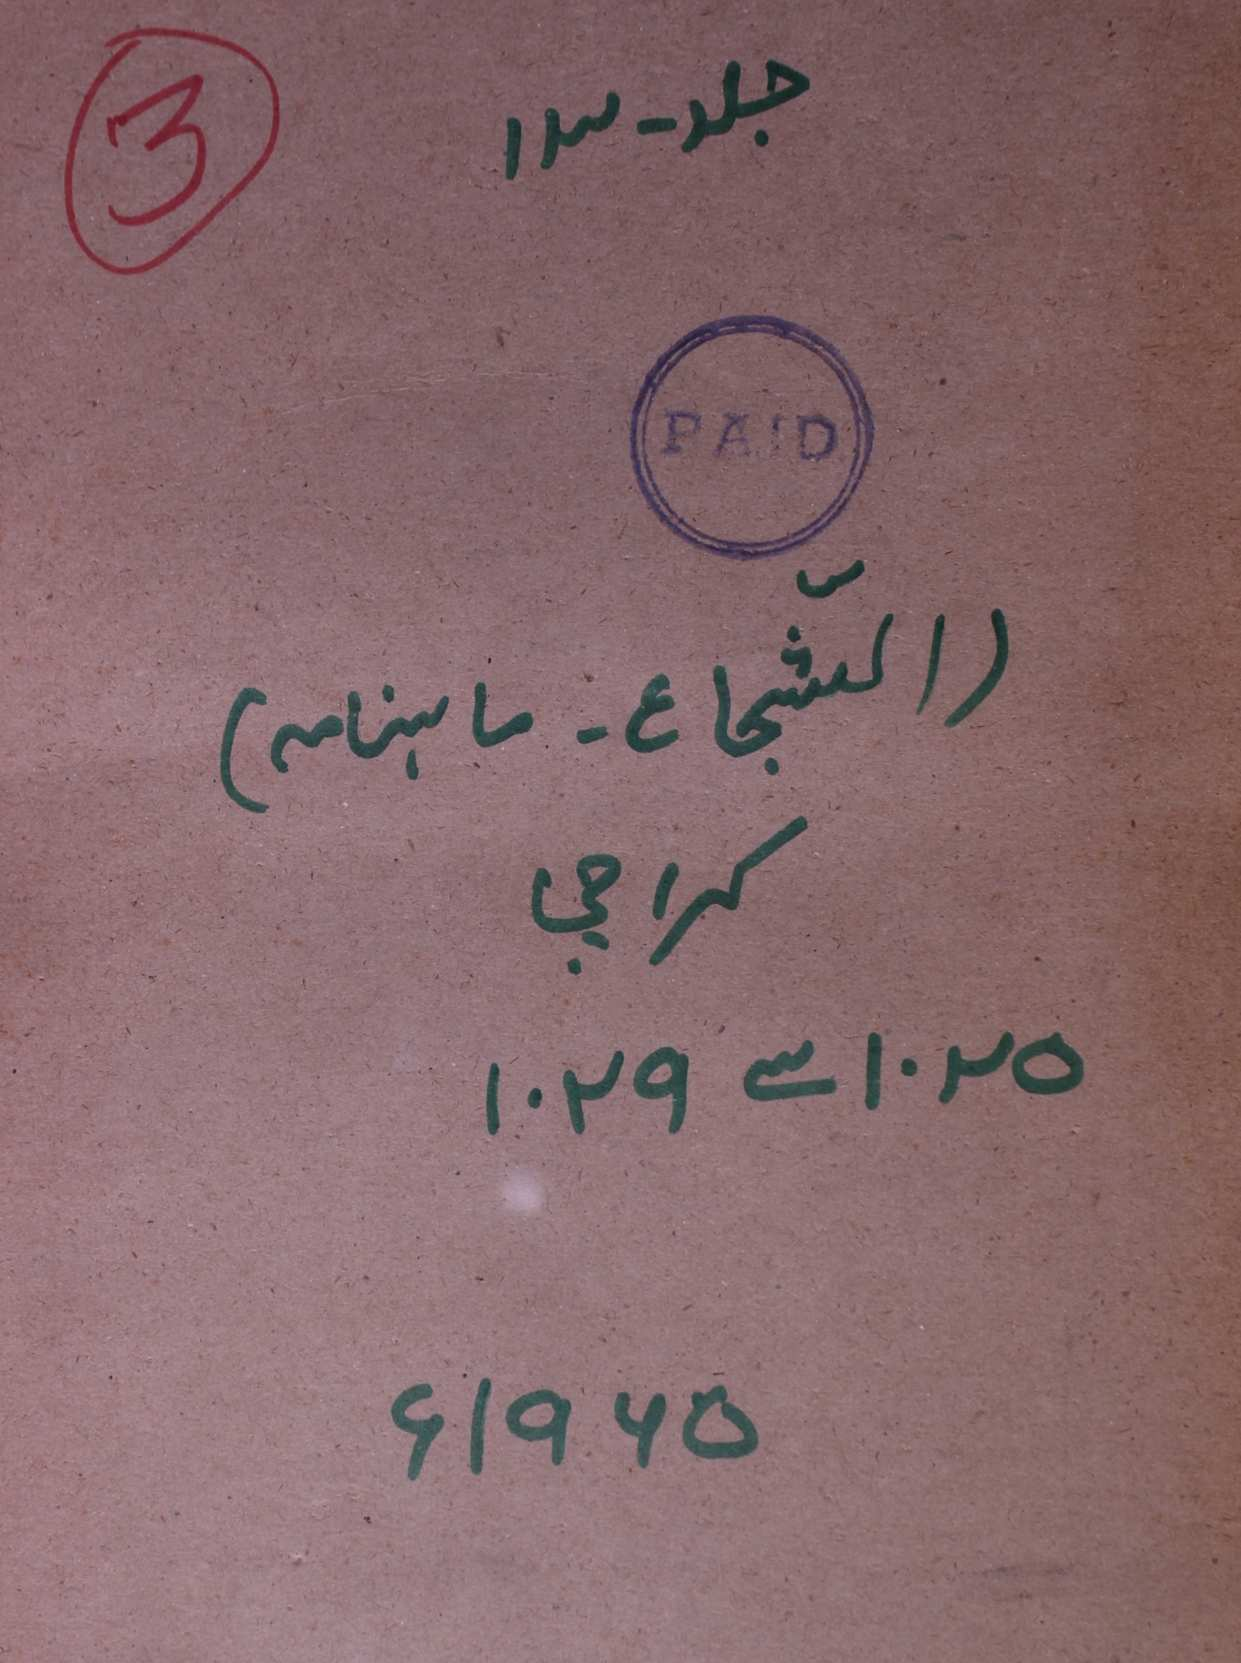 3
جلد - ۱۳
PAID
(الشّجاع - ماہنامہ)
کراچی
۱۰۲۵ سے ۱۰۲۹
۱۹۶۵ء